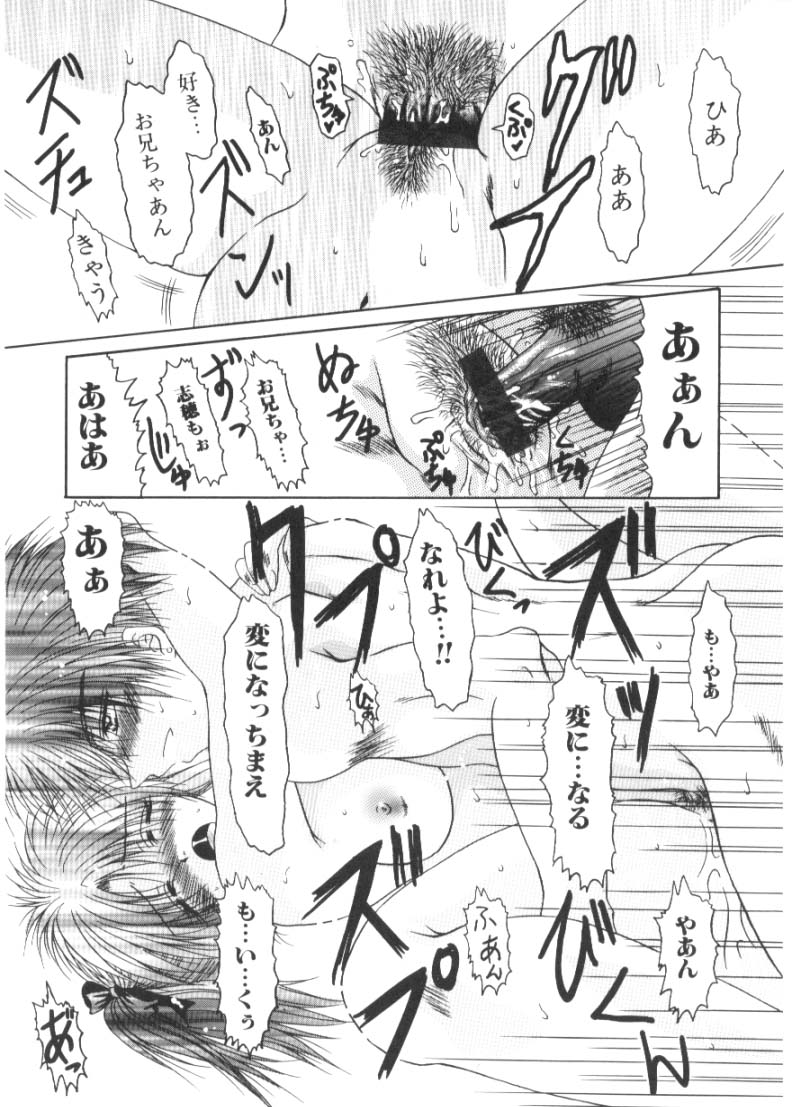 ひあ
ああ
グプ
くぷ♥
ぷちゅ♥
あん
好き…
お兄ちゃあん
ズンッ
ズチュ
きゃう
あぁん
くちゅ
ぷん
ぬちゅ
お兄ちゃ…
志穂もぉ
ずっ
じゅ
あはあ
も…やあ
ズッ
びくっ
なれよ…!!
変に…なる
クプ
変になっちまえ
ひあ
あぁ
やあん
びくん
ふあん
ズプ
も…い…くぅ
あっ